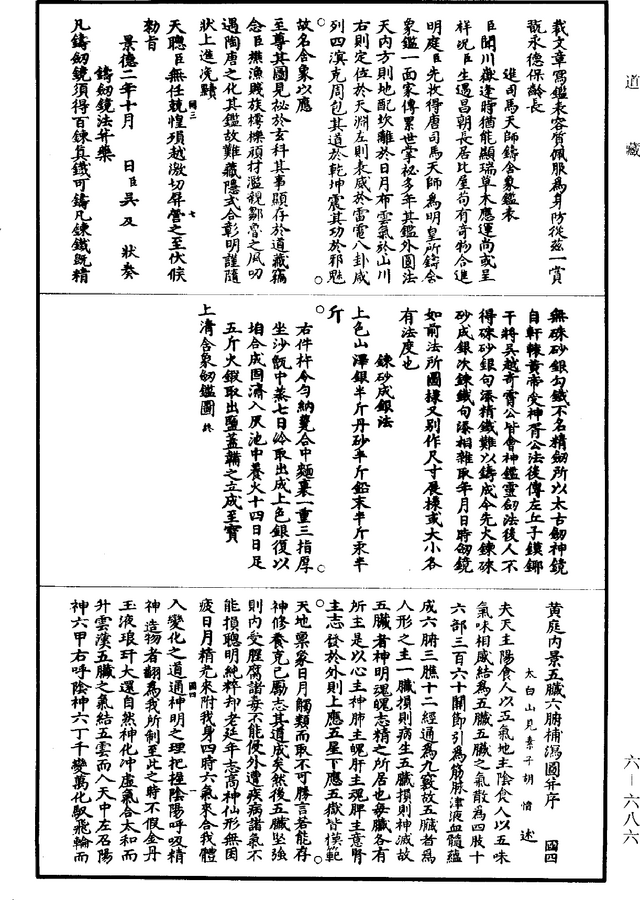 道藏
載文章寫鑑表容質佩服爲身防從茲一賞
翫永德保齡長
進司馬天師鑄含象鑑表
臣聞川嶽逢時猶能顯瑞草木應運尚或呈
祥況臣生遇昌朝長居比屋苟有奇物合進
明庭臣先收得唐司馬天師爲明皇所鑄含
象鑑一面家傳累世掌祕多年其鑑外圓法
天內方則地配坎離於日月布雲氣於山川
右則定位於天淵左則表威於雷電八卦咸
列四瀆克周包其道於乾坤震其功於邪魅
故名含象以應
至尊其圖見祕於玄科其事顯存於道藏竊
念臣樵漁賤族樗櫟頑材濫親鄒魯之風叨
遇陶唐之化其鑑故難藏隱式合彰明謹隨
狀上進洗黷
國三 七
天聰臣無任兢惶殞越激切屏營之至伏候
勅旨
景德二年十月 日臣吳及 狀奏
鑄劒鏡法并藥
凡鑄劒鏡須得百鍊真鐵可鑄凡鍊鐵既精
無硃砂銀勾鐵不名精劒所以太古劒神鏡
自軒轅黃帝受神胥公法後傳左丘子鏌鎁
干將吳越奇霄公皆會神鑑靈劒法後人不
得硃砂銀勾添精鐵難以鑄成今先火鍊硃
砂成銀次鍊鐵勾添相雜取年月日時劒鏡
如前法所圖樣又別作尺寸展樣或大小各
有法度也
鍊砂成銀法
上色山澤銀半斤丹砂半斤鉛末半斤汞半
斤
右件杵令勻納甕合中麵裹一重三指厚
坐沙瓶中蒸七日冷取出成上色銀復以
垍合成固濟入灰池中養火十四日日足
五斤火鍜取出鹽蓋鞴之立成至寶
上清含象劒鑑圖終
黃庭內景五臟六腑補瀉圖并序 國四
太白山見素子胡愔述
夫天主陽食人以五氣地主陰食人以五味
氣味相感結爲五臟五臟之氣散爲四肢十
六部三百六十關節引爲筋脉津液血髓蘊
成六腑三膲十二經通爲九竅故五臟者爲
人形之主一臟損則病生五臟損則神滅故
五臟者神明魂魄志精之所居也每臟各有
所主是以心主神肺主魄肝主魂脾主意腎
主志發於外則上應五星下應五嶽皆模範
天地稟象日月觸類而取不可勝言若能存
神修養克己勵志其道成矣然後五臟堅強
則內受腥腐諸毒不能侵外遭疾病諸氣不
能損聰明純粹却老延年志高神仙形無困
疲日月精光來附我身四時六氣來合我體
國四 一
入變化之道通神明之理把握陰陽呼吸精
神造物者翻爲我所制至此之時不假金丹
玉液琅玕大還自然神化沖虛氣合太和而
升雲漢五臟之氣結五雲而入天中左召陽
神六甲右呼陰神六丁千變萬化馭飛輪而
六—六八六